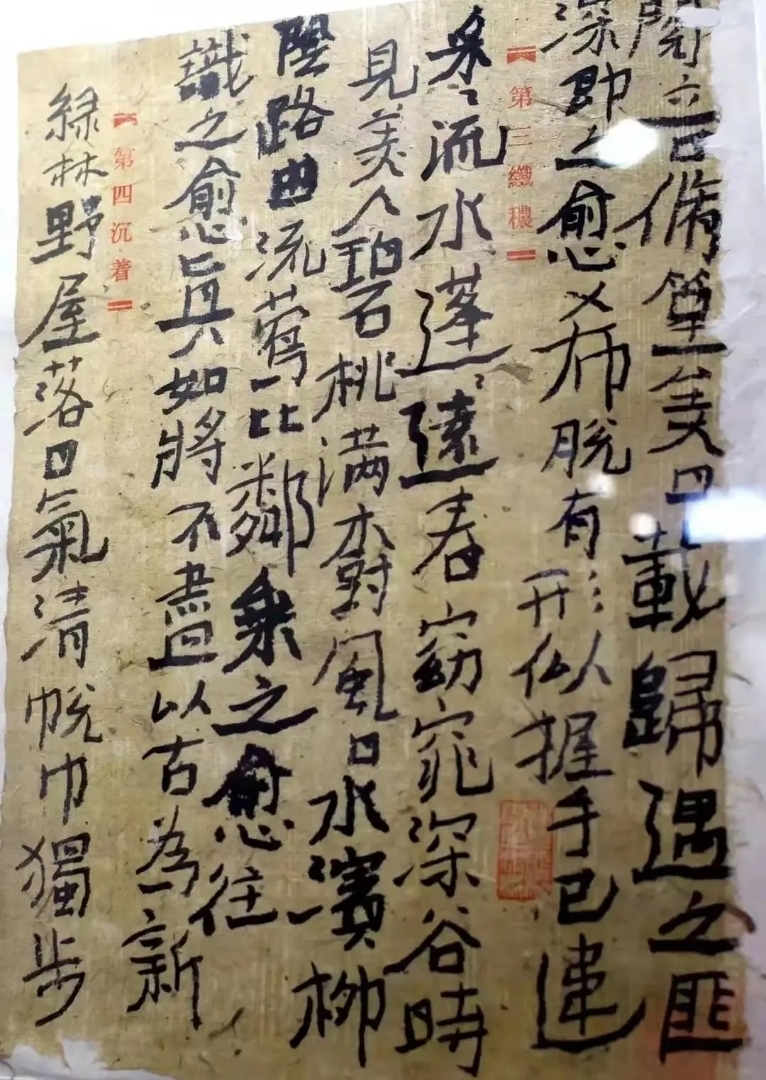 閱音脩篁美曰載歸遇之匪
深即之愈希脫有形似握手已違
第三纖穠
采〻流水蓬〻遠春窈窕深谷時
見美人碧桃滿樹風日水濱柳
陰路曲流鶯比鄰乘之愈往
識之愈真如將不盡以古為新
第四沉着
綠林野屋落日氣清帨巾獨步